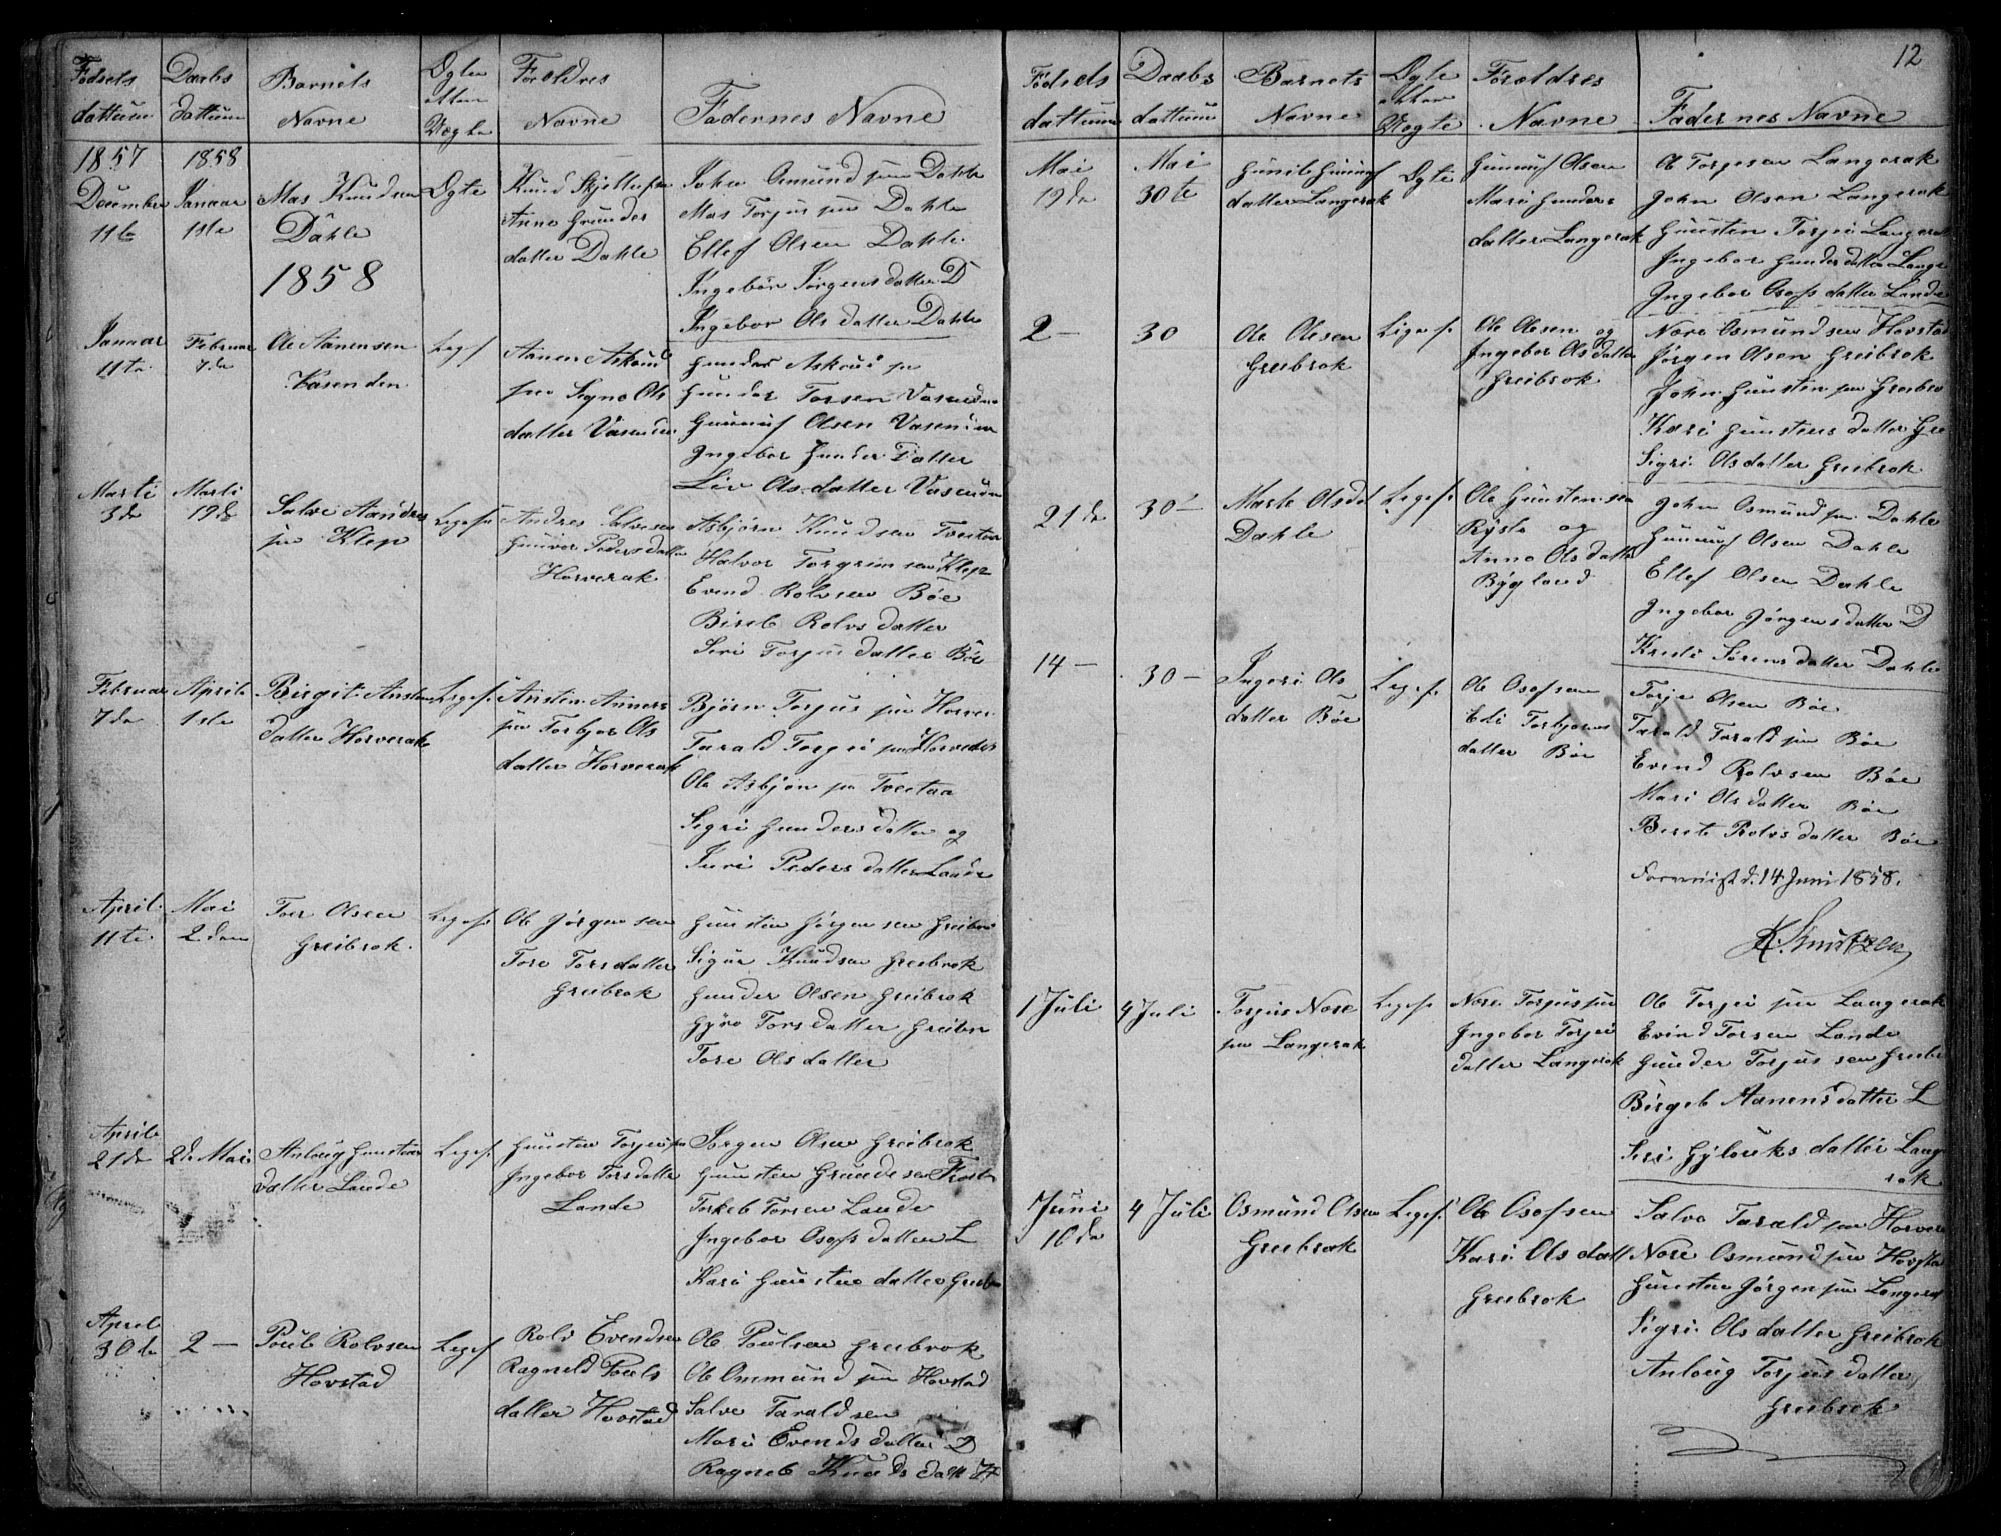 12
Fødsels
dattum
Daabs
dattum
Barnets
Navne
Ogten
etten
Uegte
Foroldres
Navne
Fadernes Navne
1857
December
11te
1858
Januar
1ste
Mas Knudsen
Dahle
1858
Ogte
Knud
Anne Gunder
datter Dahle
John Osmund sen Dahle
Mas Torjus sen Dahle
Ellef Olsen Dahle
Ingebor Jørgensdatter D
Ingebor Ols datter Dahle
Januar
11te
Februar
7de
Ole Aanensen
Vasenden
Legs.
Aanen Askoui
sen Signe Ols
datter Vasende
Gunder Askoui sen
Gunder Torsen Vasenden
Gunuf Olsen Vasenden
Ingebor Gunder Datter
Liv Ols datter Vasenden
Marti
3de
Marti
19de
Salve Aandres
sen Klep
Legs.
Andres Salvesen
Gunvor Peders datter
Horverak
Asbjørn Knudsen Tveitaa
Halvor Torgrimsen Klep
Evend Rolvsen Bøe
Bireb Rolvs datter
Siri Torjus datter Bøe
Februar
7de
April
1ste
Birgit Ansten
datter Horverak
Legs.
Ansten Anners
sen Torbjor Ols
datter Horverak
Bjørn Torjus sen Horver
Tarald Torjei sen
Ole Asbjøn sen Tveitaa
Sigri Gunders datter og
Juri Peders datter Lande
April
11te
Mai
2den
Tor Olsen
Greibrok.
Legs.
Ole Jørgensen
Tore Torsdatter
Greibrok
Gunsten Jørgensen Greibro
Sigur Knudsen Greibrok
Gunder Olsen Greibrok
Gyro Tors datter Greibr
Tore Ols datter
April
21de
2de Mai
Anloug Gunsten
datter Lande
Legs.
Gunsten Torjeis sen
Ingebor Torsdatter
Lande
Jørgen Olsen Greibrok
Gunsten Gundesen
Torkeb Torsen Lande
Ingebor Osofs datter L
Kari Gunstens datter Greibr
April
30de
2 —
Poul Rolvsen
Hovstad
Legs.
Rolv Evendsen
Ragneld Pouls
datter Hovstad
Ole Poulsen Greibrok
Ole Ommund sen Hovstad
Salve Taraldsen
Mari Evends datter D
Ragneb Knuds datt H
Fødsels
dattum
Daabs
dattum
Barnets
Navne
Ogte
etter
Uegte
Foroldres
Navne
Fadernes Navne
Mai
19de
Mai
30te
Gunil Gunuf
datter Langerak
Ogte
Gunuf Olsen
Mari Gunders
datter Langerak
Ole Torjesen Langerak
John Olsen Langerak
Gunsten Torjei Langerak
Ingebor Gundersdatter Lange
Ingebor Osofs datter Lande
2 —
30
Ole Olesen
Greibrok
Legs.
Ole Olesen og
Ingebor Olsdatter
Greibrok
Nore Osmundsen Hovstad
Jørgen Olsen Greibrok
John Gunsten sen Greibro
Kari Gunstens datter Gre
Sigri Olsdatter Greibrok
21de
30 —
Marte Olsdat
Dahle
Legs.
Ole Gunstensen
Rysta og
Anne Olsdatt
Bygland
John Osmundsen Dahle
Gunuf Olsen Dahle
Ellef Olsen Dahle
Ingebor Jørgensdatter D
Kredi Sørensdatter Dahle
14 —
30 —
Ingeri Ols
datter Bøe
Legs.
Ole Osofsen
Edi Torbjorns
datter Bøe
Torje Olsen Bøe
Tarald Tarald sen Bøe
Evend Rolvsen Bøe
Mari Olsdatter Bøe
Bireb Rolvsdatter Bøe
d. 14 Juni 1858.
K. Knutzen
1 Juli
4 Juli
Torjus Nore
sen Langerak
Legs.
Nore Torjussen
Ingebor Torjei
datter Langerak
Ole Torjei sen Langerak
Evind Torsen Lande
Gunder Torjus sen Greibr
Birgeb Aanensdatter L
Siri Gjlouks datter Lange
rak
Juni
16de
4 Juli
Osmund Olsen
Greibrok
Legs.
Ole Osofsen
Kari Olsdatt
Greibrok
Salve Tarald sen Horver
Nore Osmund sen Hovsta
Gunsten Jørgensen Langerak
Sigri Olsdatter Greibrok
Anloug Torjus datter
Greibrok